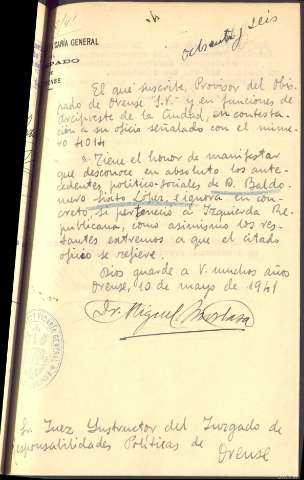 ochenta y seis
ARÍA GENERAL
PADO
DE
El que suscribe, Provisor del Obis-
pado de Orense "S.V." y en funciones de
Arcipreste de la Ciudad, en contesta-
ción a su oficio señalado con el núme-
ro 4014
Tiene el honor de manifestar
que desconoce en absoluto los ante-
cedentes político-sociales de D. Baldo-
mero Sixto López, e ignora en con-
creto, si perteneció a Izquierda Re-
publicana, como asimismo los res-
tantes extremos a que el citado
oficio se refiere.
Dios guarde a V. muchos años
Orense, 10 de mayo de 1941
Dr. Miguel
Sr. Juez Instructor del Juzgado de
Responsabilidades Políticas de
Orense